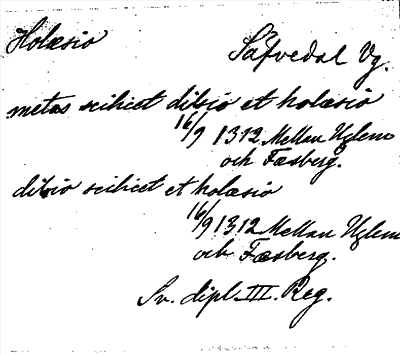 Holæsio
Säfvedal Vg.
metas scilicet dibsio et holæsio
16/9 1312 Mellan Uglem
och Fæsberg.
dibsio scilicet et holæsio
16/9 1312 Mellan Uglem
och Fæsberg.
Sv. dipl. III. Reg.